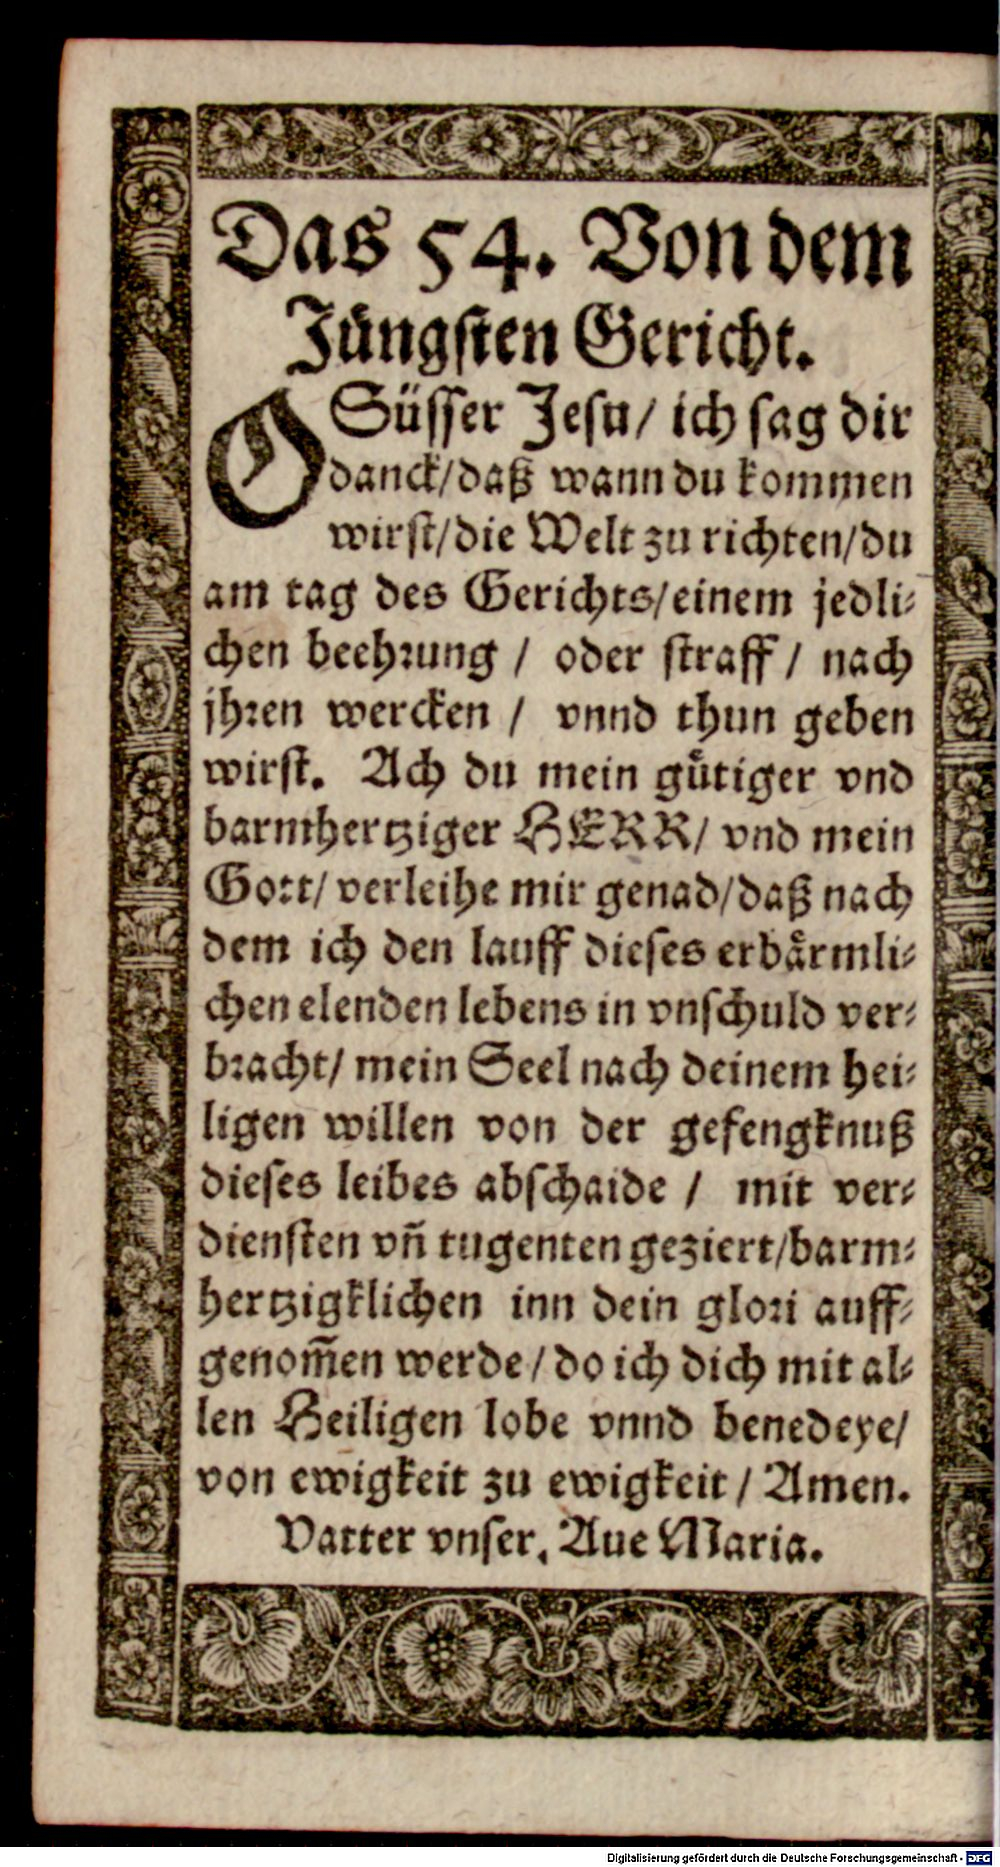 Das 54. Von dem
Jüngsten Gericht.
O Süsser Jesu/ ich sag dir
danck/daß wann du kommen
wirst/die Welt zu richten/du
am tag des Gerichts/einem jedli-
chen beehrung / oder straff / nach
jhren wercken / vnnd thun geben
wirst. Ach du mein gütiger vnd
barmhertziger HERR/ vnd mein
Gott/ verleihe mir genad/daß nach
dem ich den lauff dieses erbärmli-
chen elenden lebens in vnschuld ver-
bracht/ mein Seel nach deinem hei-
ligen willen von der gefengknuß
dieses leibes abschaide / mit ver-
diensten vñ tugenten geziert/barm-
hertzigklichen inn dein glori auff-
genom̃en werde/ do ich dich mit al-
len Heiligen lobe vnnd benedeye/
von ewigkeit zu ewigkeit / Amen.
Vatter vnser. Aue Maria.
Digitalisierung gefördert durch die Deutsche Forschungsgemeinschaft - DFG